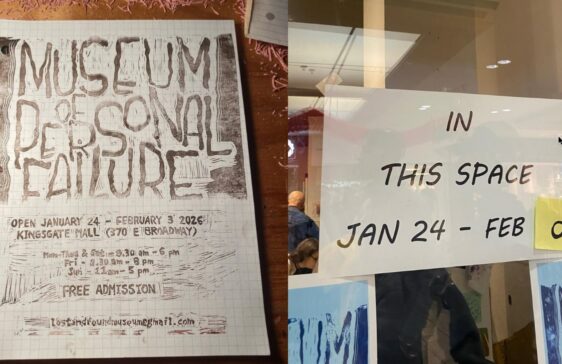 MUSEUM
OF
PERSONAL
FAILURE
OPEN JANUARY 24 - FEBRUARY 3 2026
KINGSGATE MALL (370 E BROADWAY)
Mon-Thu & Sat - 9.30 am - 6 pm
Fri - 9.30 am - 8 pm
Sun - 11 am - 5 pm
FREE ADMISSION
lostandfoundmuseum@gmail.com
IN
THIS SPACE
JAN 24 - FEB